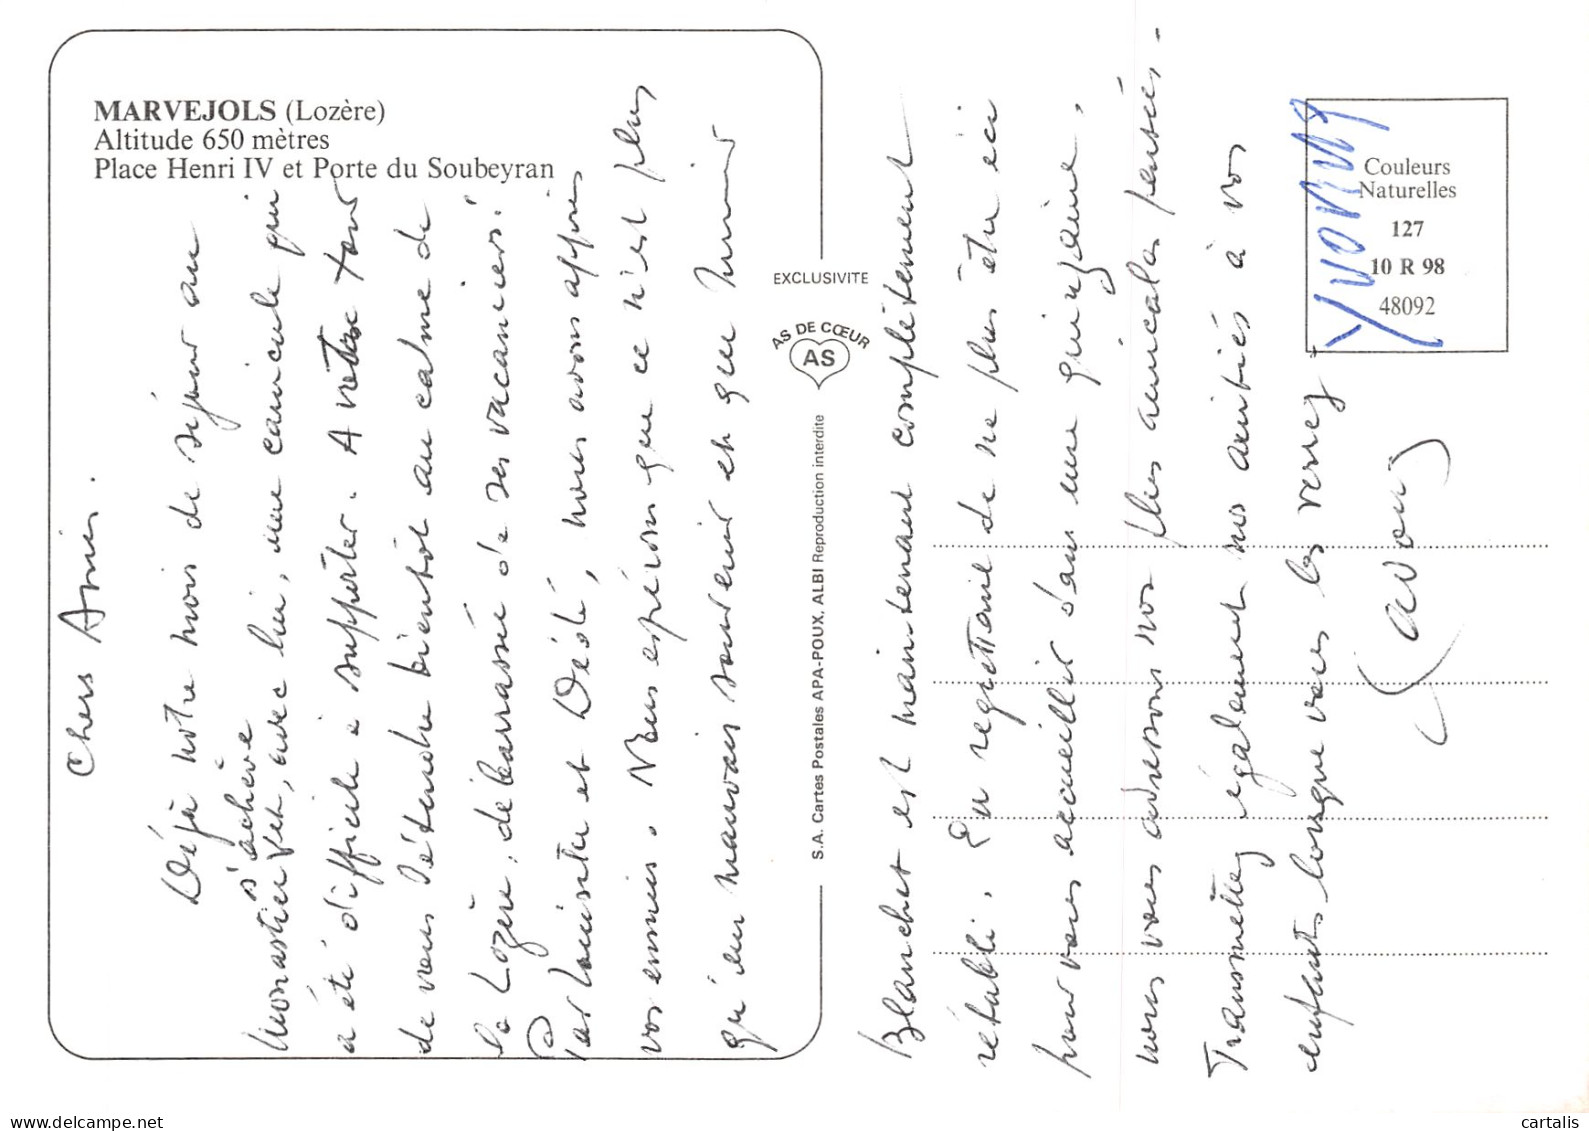 MARVEJOLS (Lozère)
Altitude 650 mètres
Place Henri IV et Porte du Soubeyran
EXCLUSIVITE
AS DE CŒUR
AS
S.A. Cartes Postales APA-POUX, ALBI Reproduction interdite
Couleurs
Naturelles
127
10 R 98
48092
Chers Amis.
Déjà notre mois de séjour au
s'achève
Monastier et, avec lui, une canicule qui
a été difficile à supporter. A votre tour
de vous détendre bientôt au calme de
la Lozère, débarrassée de ses vacanciers.
Par Louisette et Dédé, nous avons appris
vos ennuis. Nous espérons que ce n'est plus
qu'un mauvais souvenir et que Mimir
Blanchet est maintenant complètement
rétabli. En regrettant de ne plus être ici
pour vous accueillir dans une quinzaine,
nous vous adressons nos plus amicales pensées.
Transmettez également nos amitiés à vos
enfants lorsque vous les verrez
Yvonne